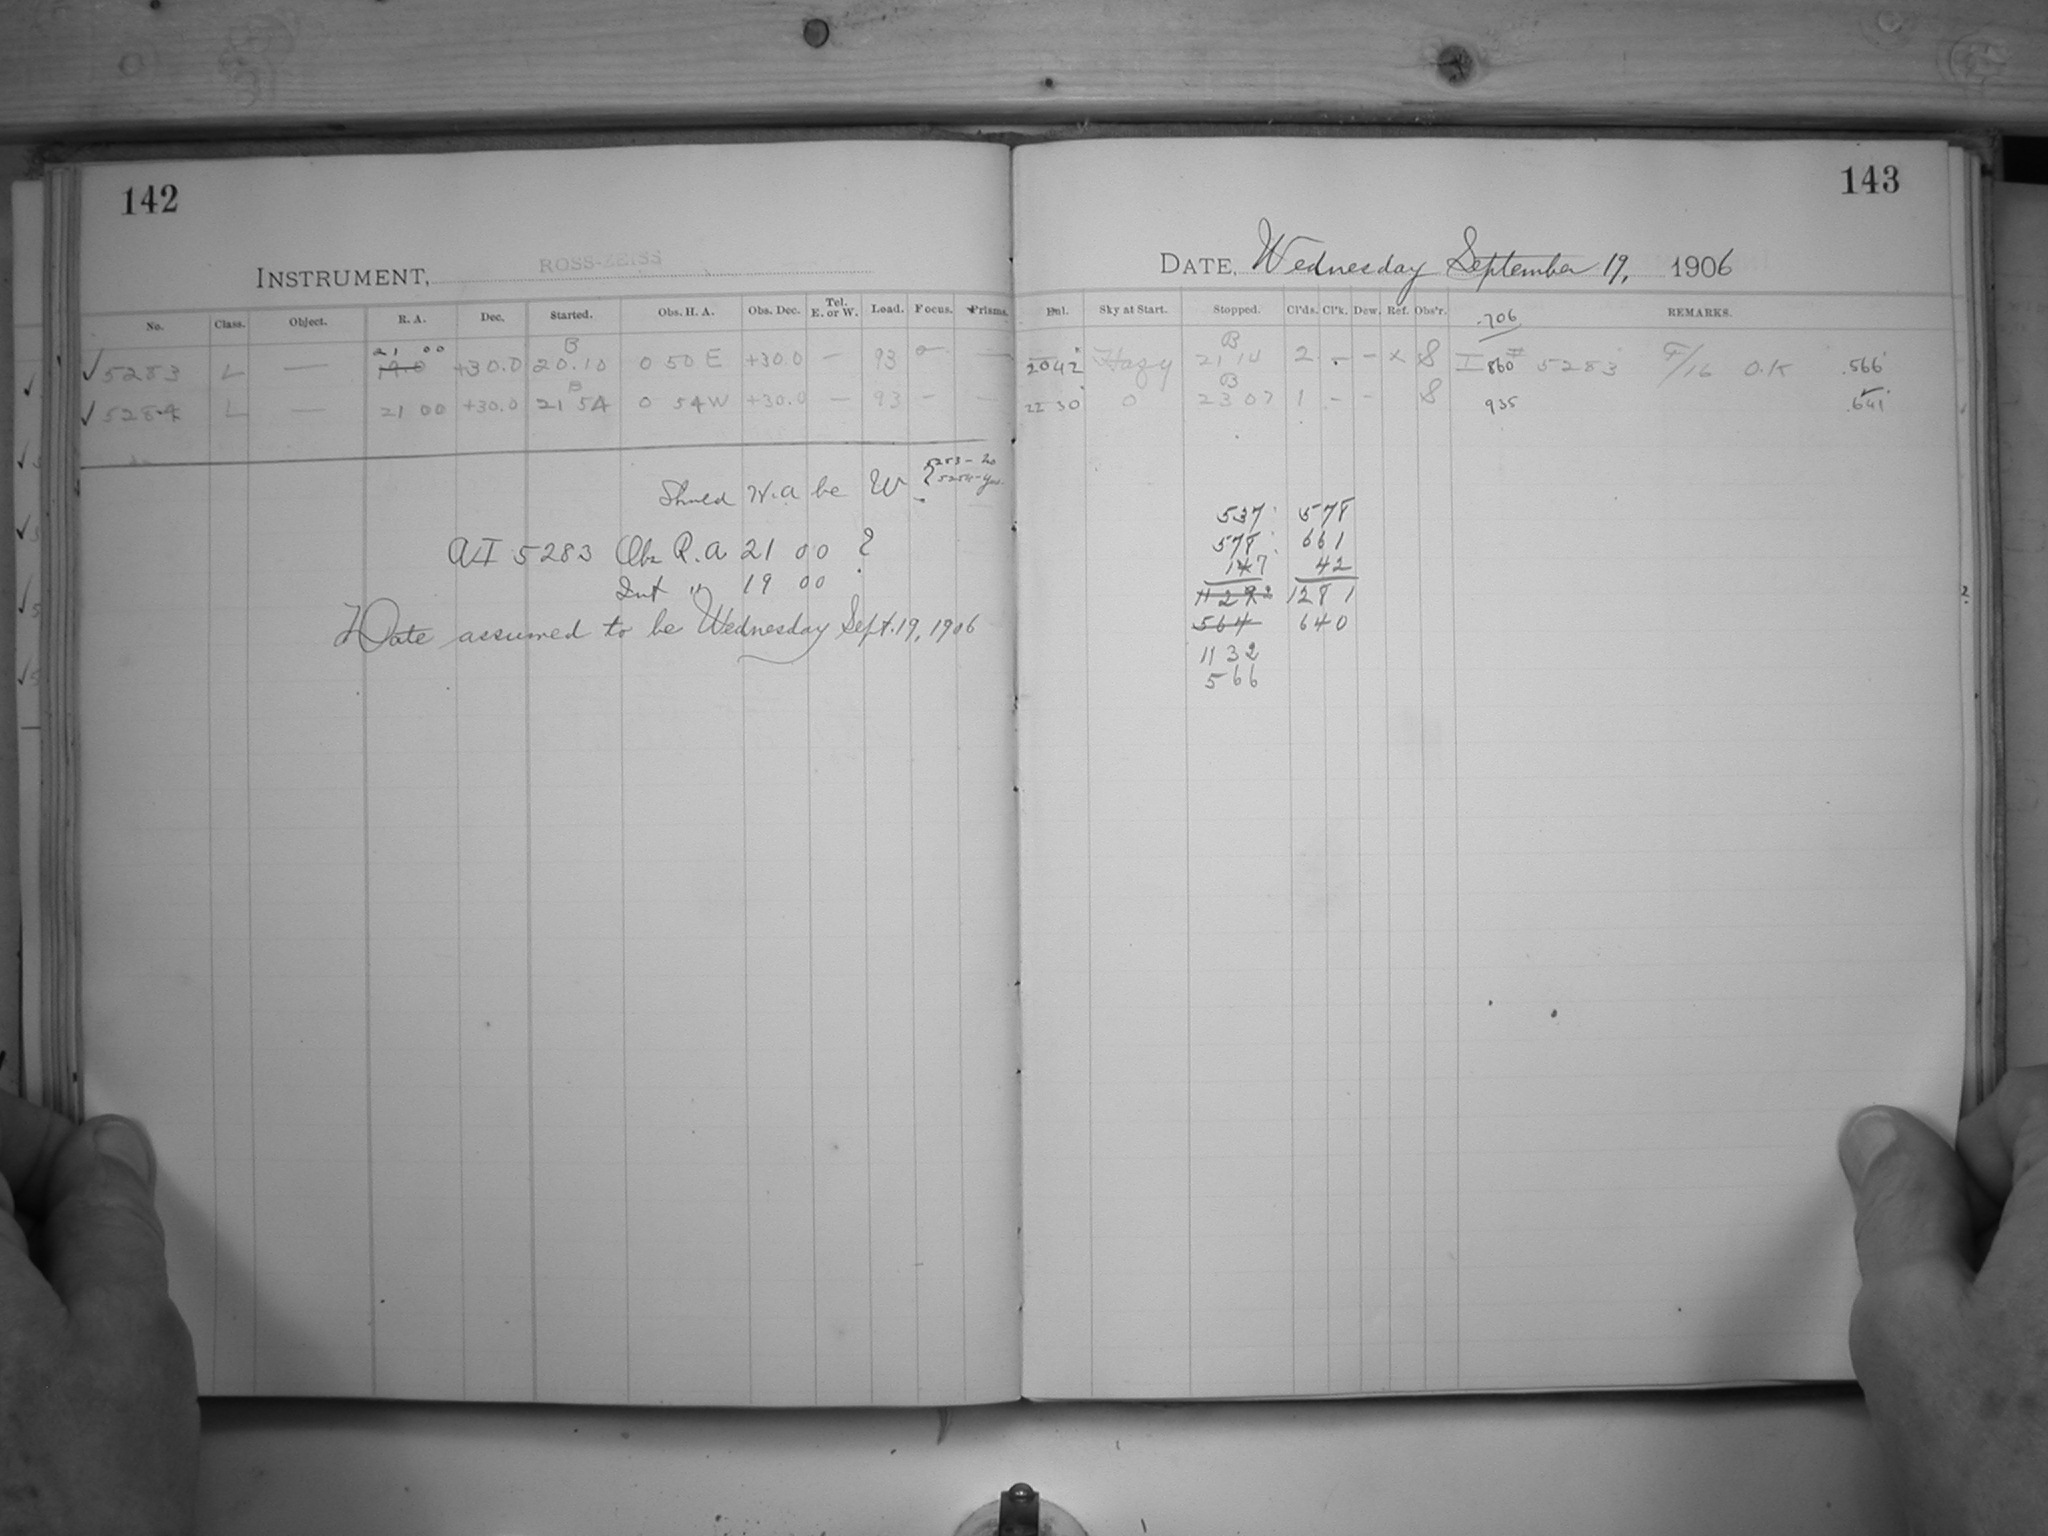 142
INSTRUMENT, ROSS-ZEISS
No. Class. Object. R. A. Dec. Started. Obs. H. A. Obs. Dec. Tel. E. or W. Load. Focus. Prisms.
21 00
✓5283 L — 19 0 +30.0 B 20.10 0 50 E +30.0 — 93 — —
✓5284 L — 21 00 +30.0 B 21 54 0 54 W +30.0 — 93 — —
Should H.A be W ? 5283 - no
5284 - yes.
AI 5283 Obs R.A 21 00 ?
Int " 19 00
Date assumed to be Wednesday Sept. 19, 1906
143
DATE, Wednesday September 19, 1906
Sky at Start. Stopped. Cl'ds. Cl'k. Dew. Ref. Obs'r. REMARKS.
.706
2042 Hazy B 21 14 2 - - x S I 860 5283 F/16 O.K .566
22 30 0 B 23 07 1 - - S 935 .641
537 578
578 661
147 42
1292 1281
564 640
1132
566